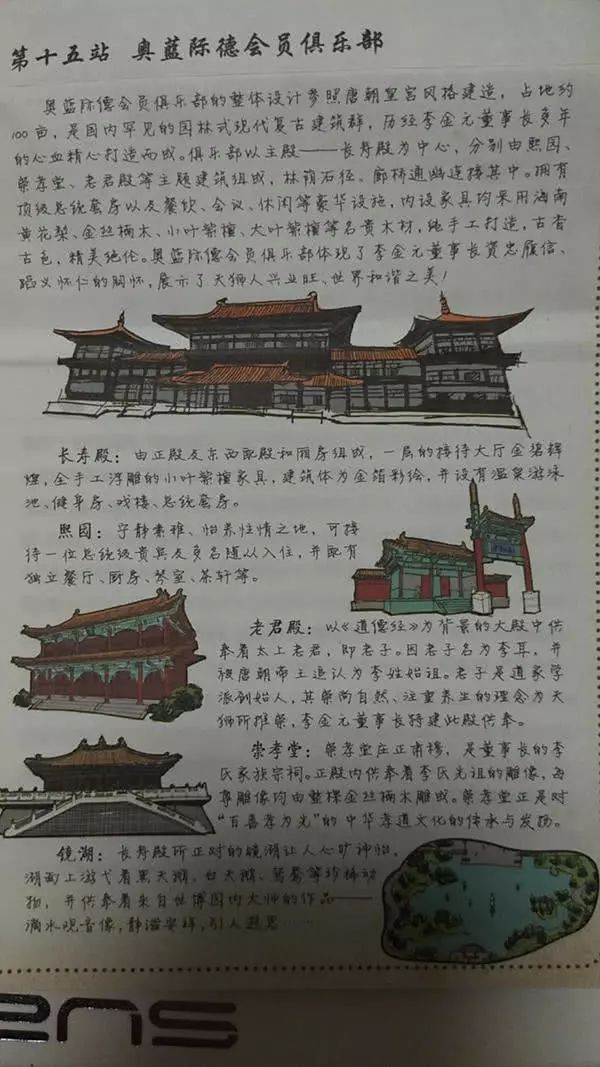 第十五站 奥蓝际德会员俱乐部
奥蓝际德会员俱乐部的整体设计参照唐朝皇宫风格建造，占地约
100亩，是国内罕见的园林式现代复古建筑群，历经李金元董事长多年
的心血精心打造而成。俱乐部以主殿——长寿殿为中心，分别由熙园、
崇孝堂、老君殿等主题建筑组成，林荫石径、廊桥通幽连接其中。拥有
顶级总统套房以及餐饮、会议、休闲等豪华设施，内设家具均采用海南
黄花梨、金丝楠木、小叶紫檀、大叶紫檀等名贵木材，纯手工打造，古香
古色，精美绝伦。奥蓝际德会员俱乐部体现了李金元董事长资忠履信、
蹈义怀仁的胸怀，展示了天狮人兴业旺、世界和谐之美！
长寿殿：由正殿及东西配殿和厢房组成，一层的接待大厅金碧辉
煌，全手工浮雕的小叶紫檀家具，建筑体为金箔彩绘，并设有温泉游泳
池、健身房、戏楼、总统套房。
熙园：宁静素雅、怡养性情之地，可接
待一位总统级贵宾及多名随从入住，并配有
独立餐厅、厨房、琴室、茶轩等。
老君殿：以《道德经》为背景的大殿中供
奉着太上老君，即老子。因老子名为李耳，并
被唐朝帝王追认为李姓始祖。老子是道家学
派创始人，其崇尚自然、注重养生的理念为天
狮所推崇，李金元董事长特建此殿供奉。
崇孝堂：崇孝堂在正南楼，是董事长的李
氏家族宗祠。正殿内供奉着李氏先祖的雕像，每
尊雕像均由整棵金丝楠木雕成。崇孝堂正是对
“百善孝为先”的中华孝道文化的传承与发扬。
镜湖：长寿殿所正对的镜湖让人心旷神怡，
湖面上游弋着黑天鹅、白天鹅、鸳鸯等珍稀动
物，并供奉着来自世博园内大师的作品——
滴水观音像，静谧安祥，引人遐思……
ens